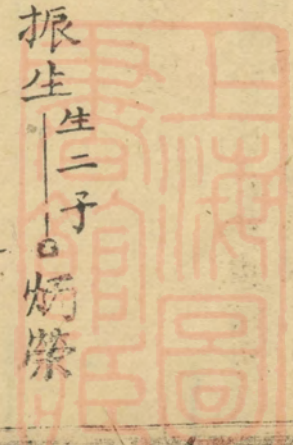 振生
生二子
炳榮
上海圖
書館藏